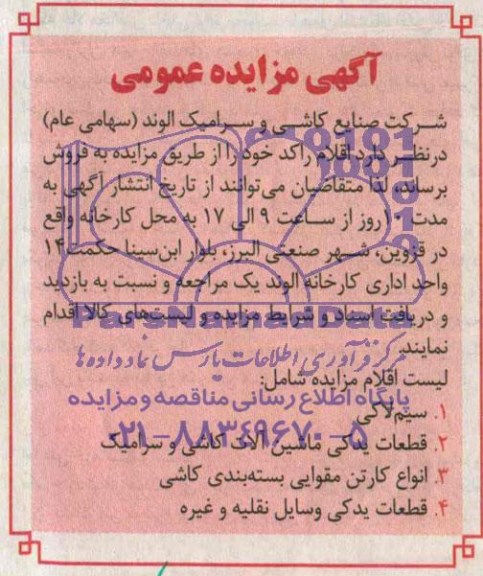 آگهی مزایده عمومی
شرکت صنایع کاشی و سرامیک الوند (سهامی عام)
درنظر دارد اقلام راکد خود را از طریق مزایده به فروش
برساند، لذا متقاضیان می‌توانند از تاریخ انتشار آگهی به
مدت ۱۰ روز از ساعت ۹ الی ۱۷ به محل کارخانه واقع
در قزوین، شهر صنعتی البرز، بلوار ابن‌سینا حکمت ۱۴
واحد اداری کارخانه الوند یک مراجعه و نسبت به بازدید
و دریافت اسناد و شرایط مزایده و لیست‌های کالا اقدام
نمایند.
ParsNamadData
مرکز فرآوری اطلاعات پارس نماد داده ها
لیست اقلام مزایده شامل:
پایگاه اطلاع رسانی مناقصه و مزایده
۱. سیم‌لاکی
۰۲۱-۸۸۳۴۹۶۷۰-۵
۲. قطعات یدکی ماشین آلات کاشی و سرامیک
۳. انواع کارتن مقوایی بسته‌بندی کاشی
۴. قطعات یدکی وسایل نقلیه و غیره